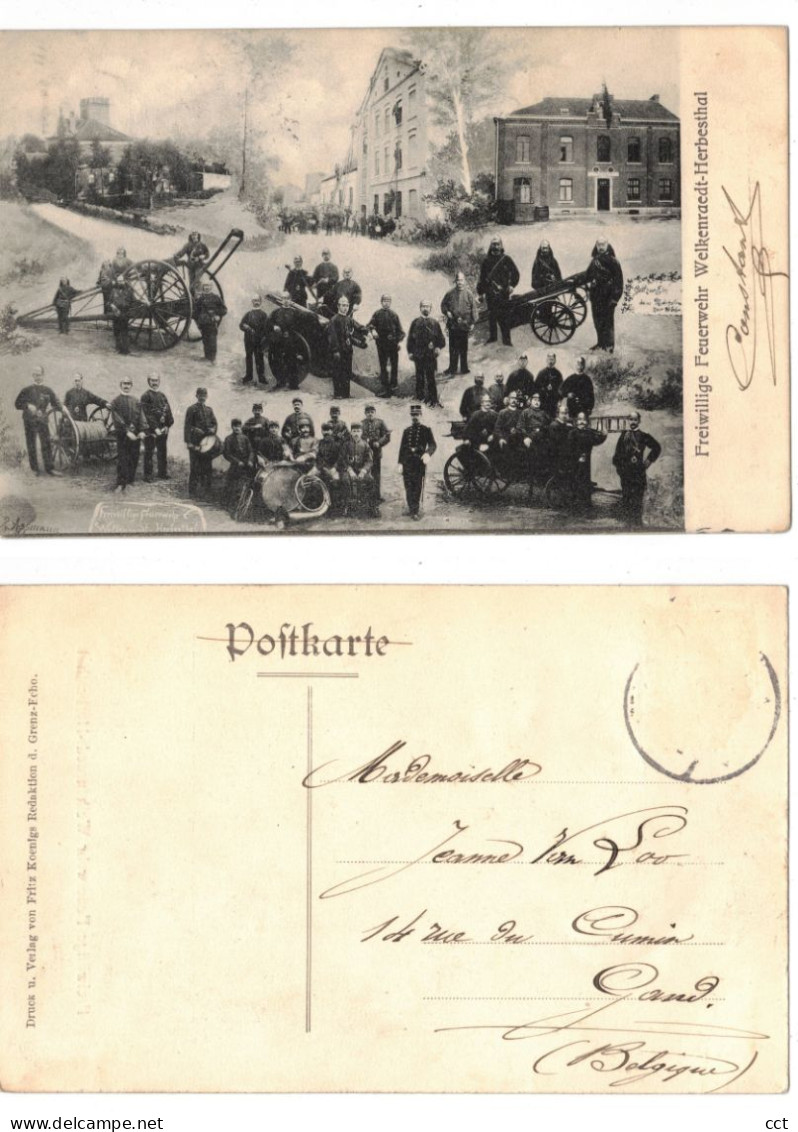 Freiwillige Feuerwehr Welkenraedt-Herbesthal
Constant
Postkarte
Druck u. Verlag von Fritz Koenigs Redaktion d. Grenz-Echo.
Mademoiselle
Jeanne Van Loo
14 rue du Cumin
Gand.
(Belgique)
cct